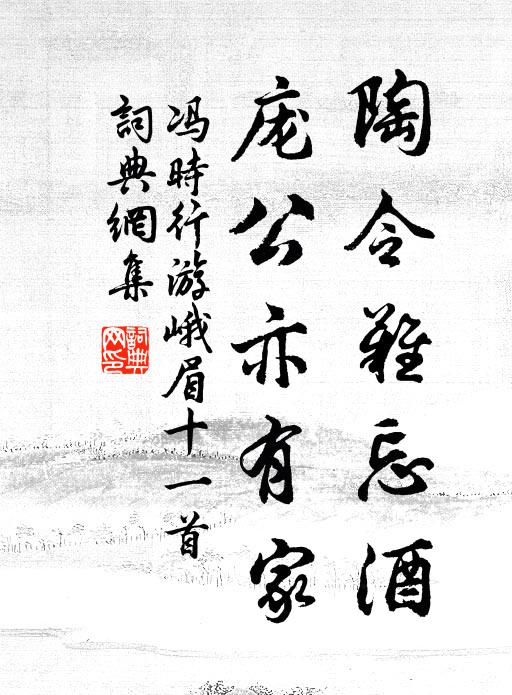 陶令難忘酒
庞公亦有家
冯時行游峨眉十一首
詞典網集
詞典
网印